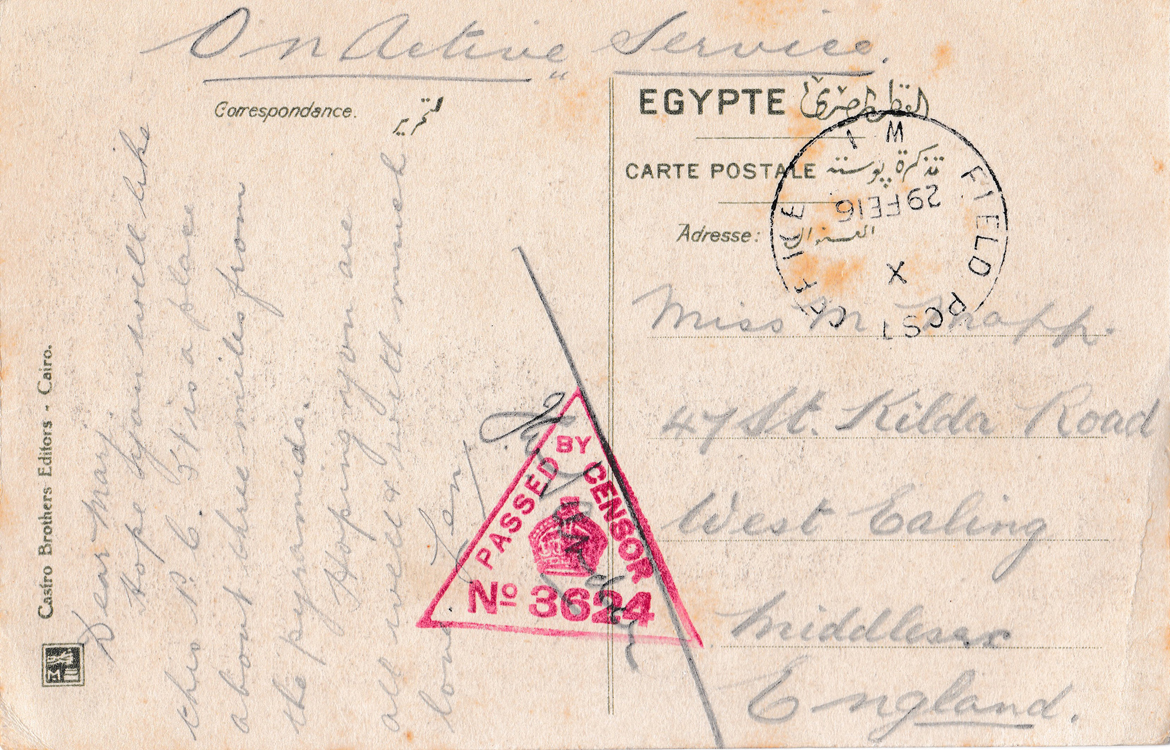 "On Active Service.
Correspondance.
EGYPTE القطر المصرى
CARTE POSTALE تذكرة پوسته
Adresse: العنوان
FIELD POST OFFICE
W 1
29 FE 16
X
Dear May,
hope you will like
this P. C. it is a place
about three miles from
the pyramids.
Hoping you are
all well & with much
love Len
PASSED BY CENSOR
No 3624
Miss M
47 St. Kilda Road
West Ealing
Middlesex
England.
Castro Brothers Editors - Cairo.